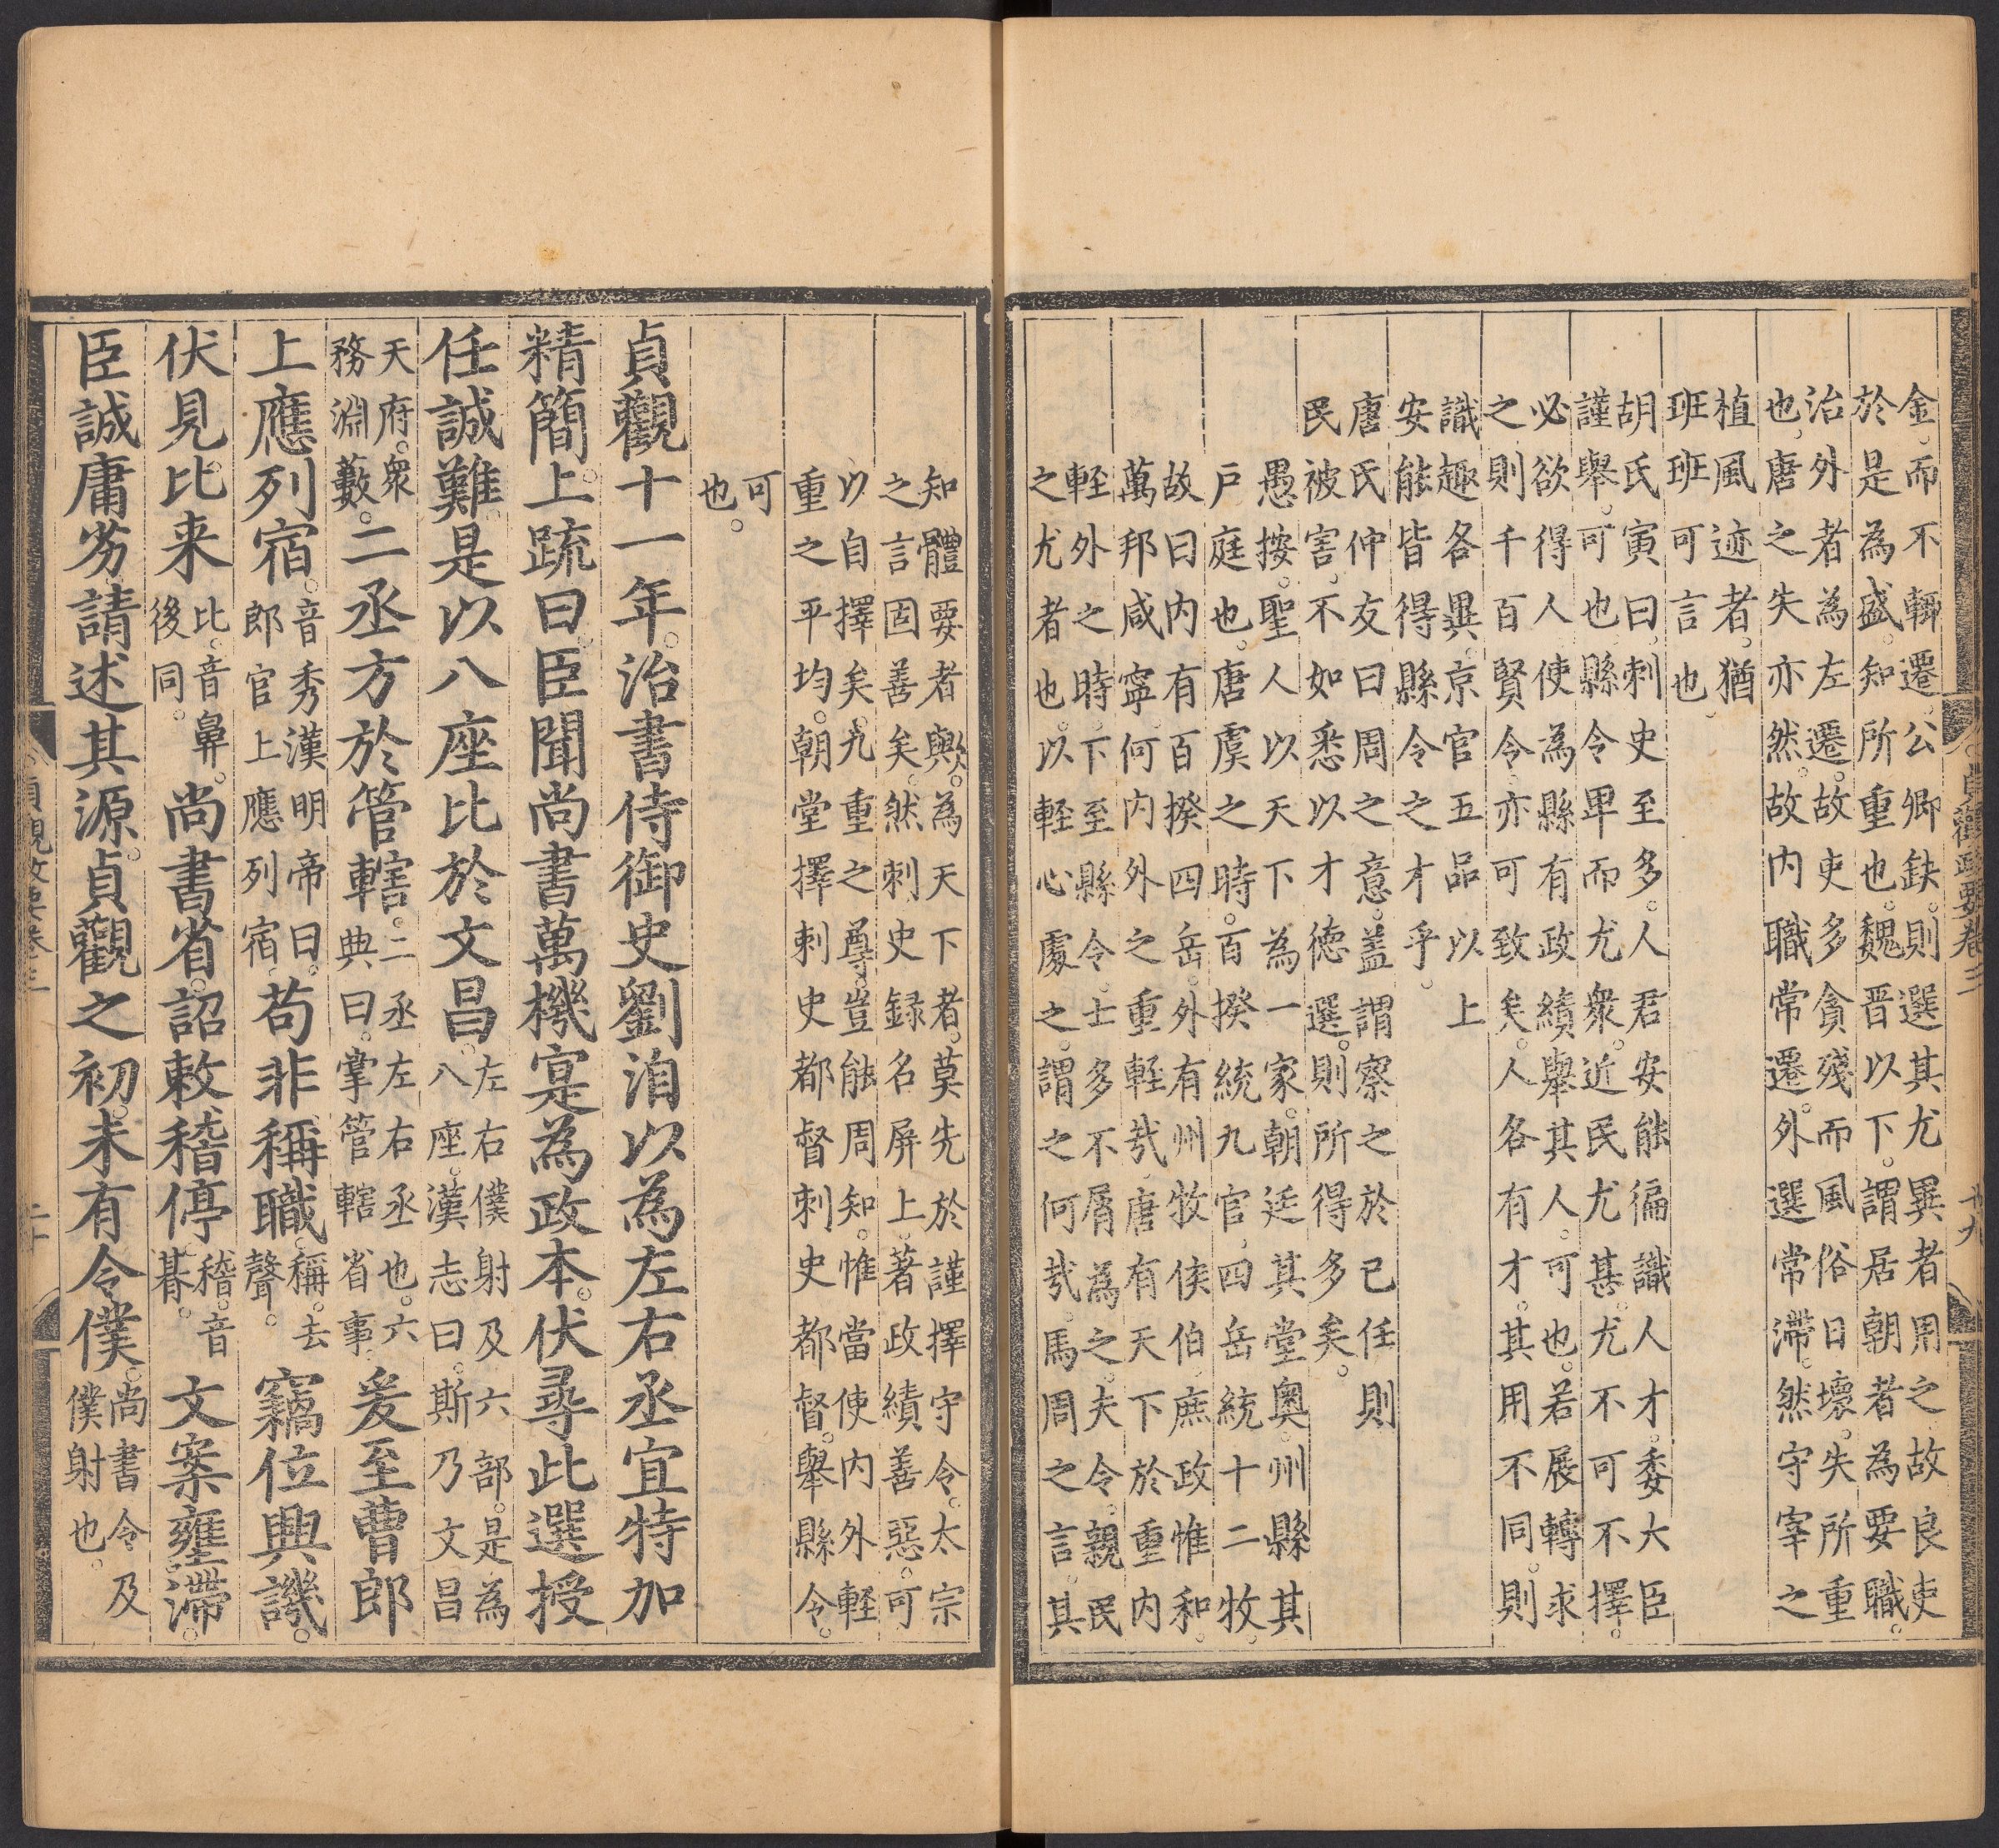 貞觀政要卷三
十九
金而不輒遷。公卿缺。則選其尤異者用之。故良吏
於是為盛。知所重也。魏晉以下。謂居朝者為要職。
治外者為左遷。故吏多貪殘而風俗日壞。失所重
也。唐之失亦然。故内職常遷。外選常滯。然守宰之
植風迹者。猶
班班可言也。
胡氏寅曰。刺史至多。人君安能徧識人才。委大臣
謹舉。可也。縣令卑而尤衆。近民尤甚。尤不可不擇。
必欲得人。使為縣有政績。舉其人。可也。若展轉求
之。則千百賢令。亦可致矣。人各有才。其用不同。則
識趣各異。京官五品以上
安能皆得縣令之才乎。
唐氏仲友曰。周之意。蓋謂察之於已任則
民被害。不如悉以才徳選。則所得多矣。
愚按。聖人以天下為一家。朝廷其堂奥。州縣其
戸庭也。唐虞之時。百揆統九官。四岳統十二牧。
故曰。内有百揆四岳。外有州牧侯伯。庶政惟和。
萬邦咸寧。何内外之重輕哉。唐有天下。於重内
輕外之時。下至縣令。士多不屑為之。夫令。親民
之尤者也。以輕心處之。謂之何哉。馬周之言。其
知體要者歟。為天下者。莫先於謹擇守令。太宗
之言固善矣。然刺史録名屏上。著政績善惡。可
以自擇矣。九重之尊。豈能周知。惟當使内外輕
重之平均。朝堂擇刺史都督。刺史都督舉縣令。
可
也。
貞觀十一年。治書侍御史劉洎以為左右丞宜特加
精簡。上疏曰。臣聞尚書萬機。寔為政本。伏尋此選。授
任誠難。是以八座比於文昌。左右僕射及六部。是為八座。漢志曰。斯乃文昌
天府。衆務淵藪。二丞方於管轄。二丞左右丞也。六典曰。掌管轄省事。爰至曹郎
上應列宿。音秀。漢明帝曰。郎官上應列宿。苟非稱職。稱。去聲。竊位興譏。
伏見比来比。音鼻。後同。尚書省。詔敕稽停。稽。音朞。文案壅滯。
臣誠庸劣。請述其源。貞觀之初。未有令僕。尚書令及僕射也。
貞觀政要卷三
二十